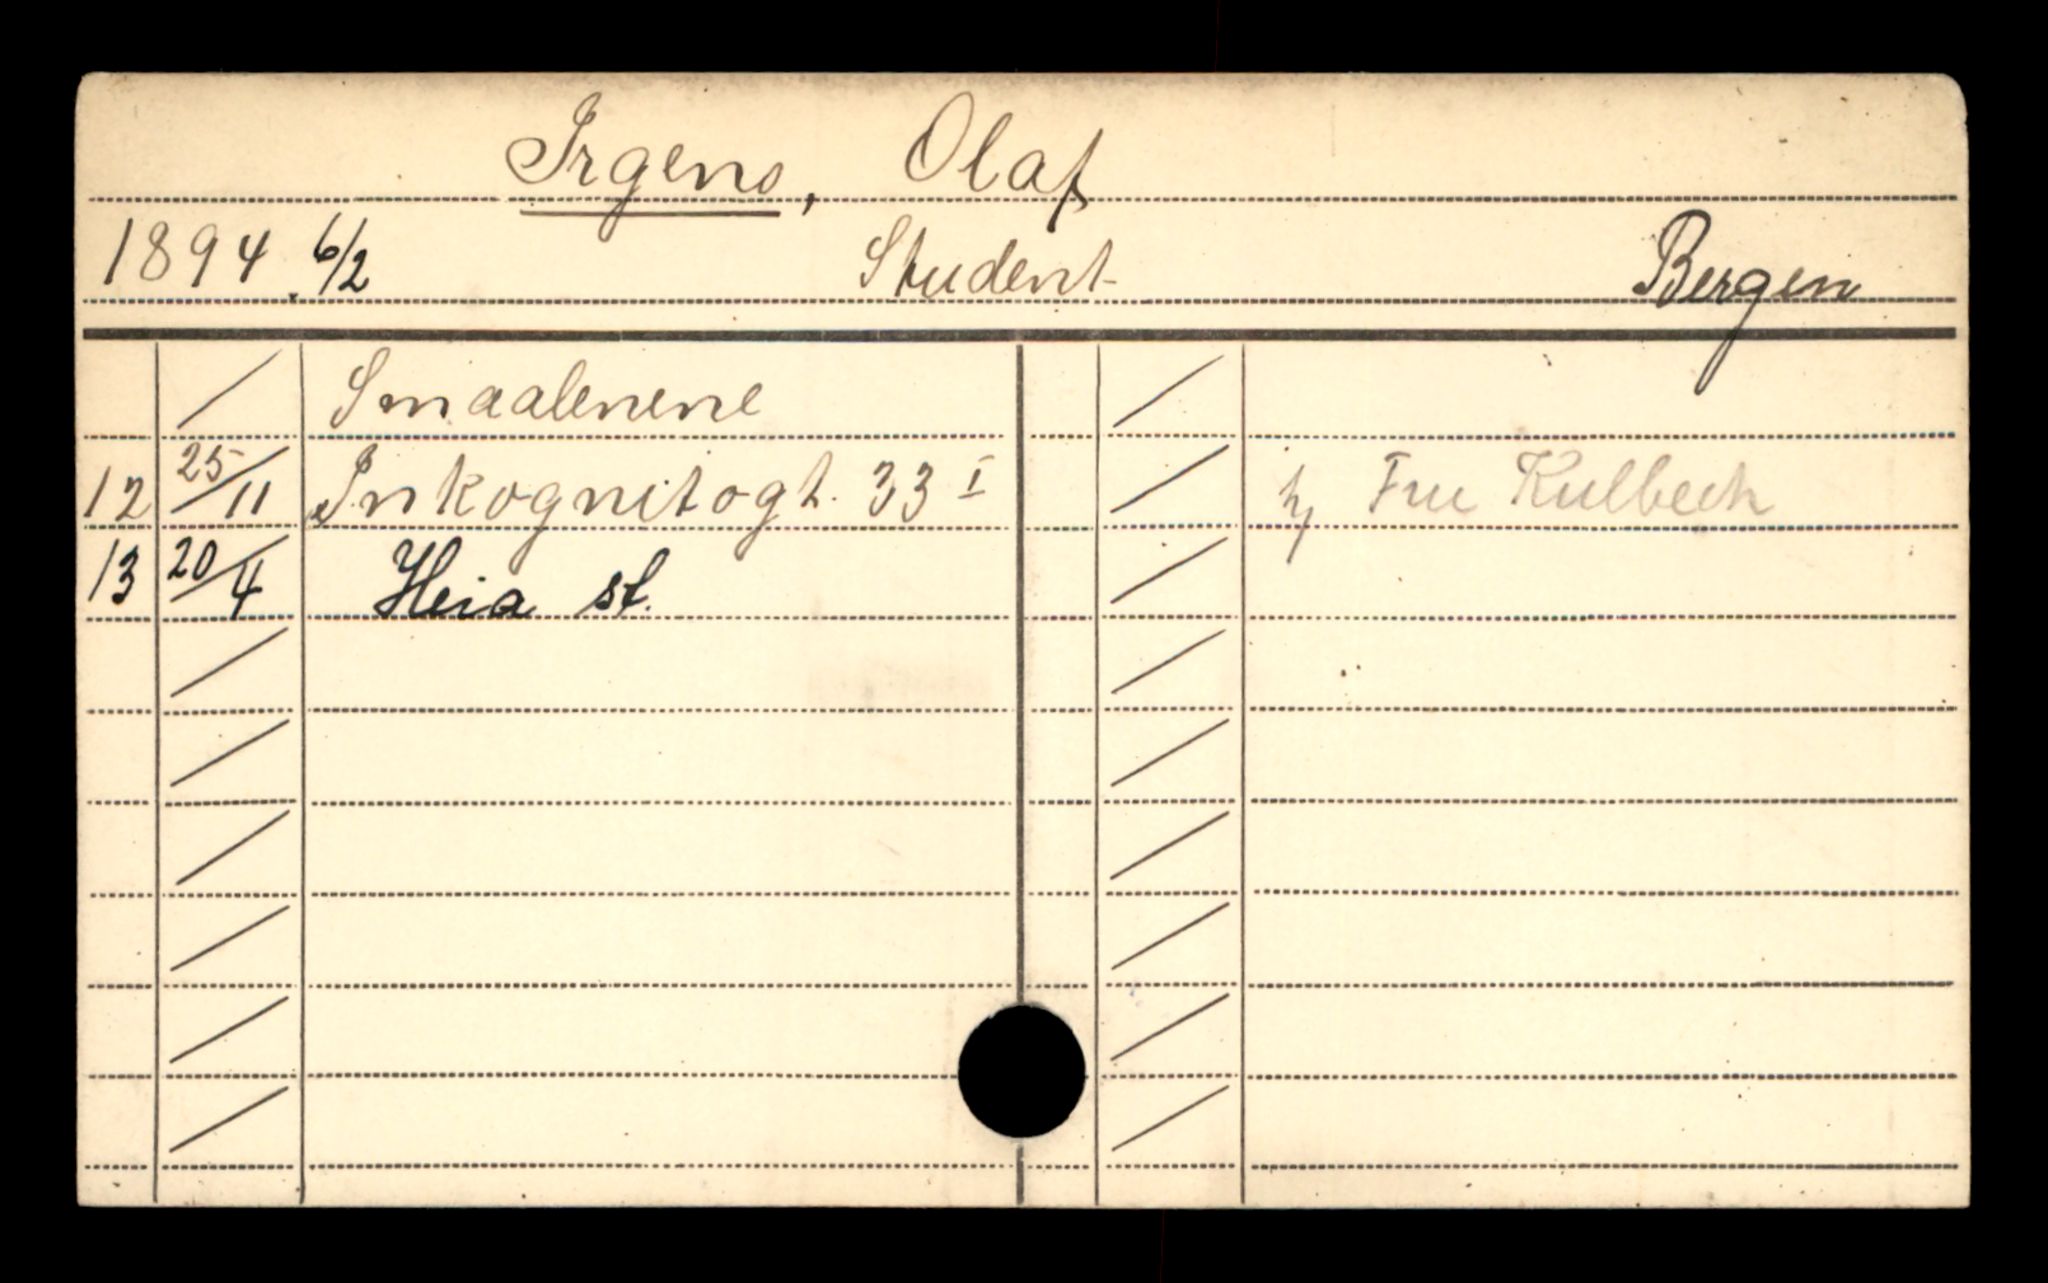 Irgens, Olaf
1894. 6/2 Student Bergen
Smaalenene
12 25/11 Inkognitogt. 33 I h/ Fru Kulbech
13 20/4 Heia st.